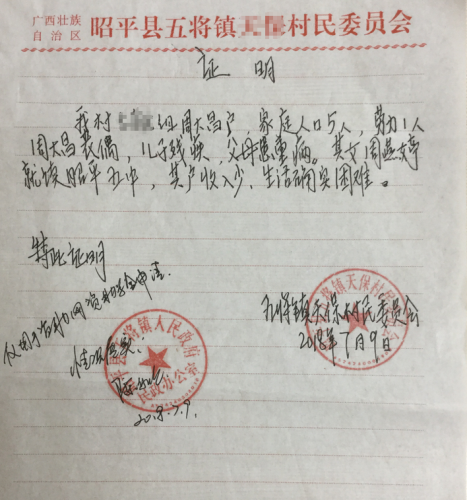 广西壮族
自治区
昭平县五将镇天保村民委员会
证明
我村组周大昌户，家庭人口5人，劳力1人
周大昌丧偶，儿子残疾，父母患重病。其女周婷
就读昭平五中，其户收入少，生活确实困难。
特此证明
仅用于网资助金申请.
情况属实.
五将镇天保村民委员会
2018年7月9日
五将镇人民政府
民政办公室
2018.7.9.